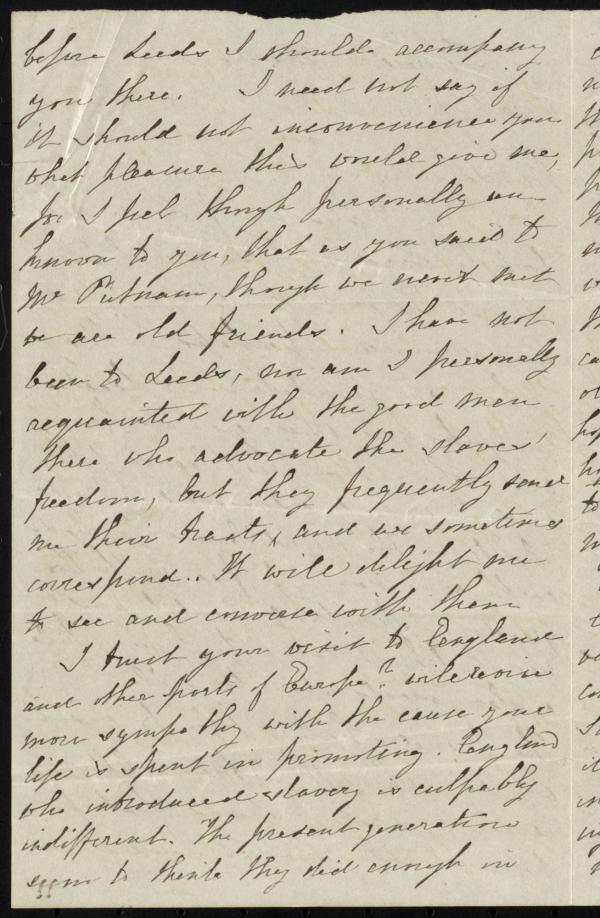 before Leeds I should accompany
you there. I need not say if
it should not inconvenience you
what pleasure this would give me,
for I feel though personally un-
known to you, that as you said to
Mr Putnam, though we never met
we are old friends. I have not
been to Leeds, nor am I personally
acquainted with the good men
there who advocate the slaves'
freedom, but they frequently send
me their tracts, and we sometimes
correspond.. It will delight me
to see and converse with them
I trust your visit to England
and other parts of Europe? will
more sympathy with the cause your
life is spent in promoting. England
who introduced slavery is culpably
indifferent. The present generation
seem to think they did enough in